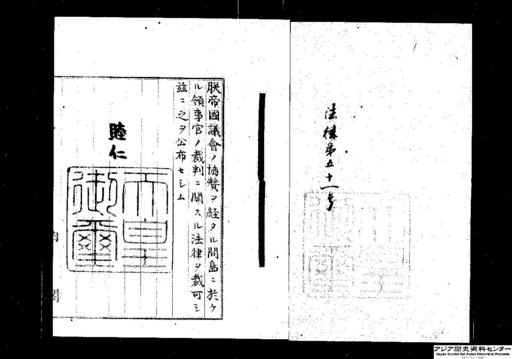 法律第五十一号
朕帝國議會ノ協賛ヲ経タル間島ニ於ケ
ル領事官ノ裁判ニ關スル法律ヲ裁可シ
茲ニ之ヲ公布セシム
睦仁
天皇
御璽
内閣
アジア歴史資料センター
Japan Center for Asian Historical Records